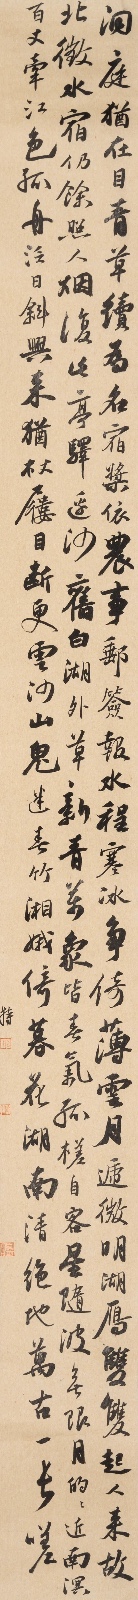 洞庭猶在目青草續為名宿槳依農事郵籤報水程寒冰爭倚薄雲月遞微明湖雁雙雙起人來故
北徵水宿仍餘照人烟復此亭驛邊沙舊白湖外草新青萬象皆春氣孤槎自客星隨波無限月的々近南溟
百丈牽江色孤舟泛日斜興來猶杖屨目斷更雲沙山鬼迷春竹湘娥倚暮花湖南清絕地萬古一長嗟